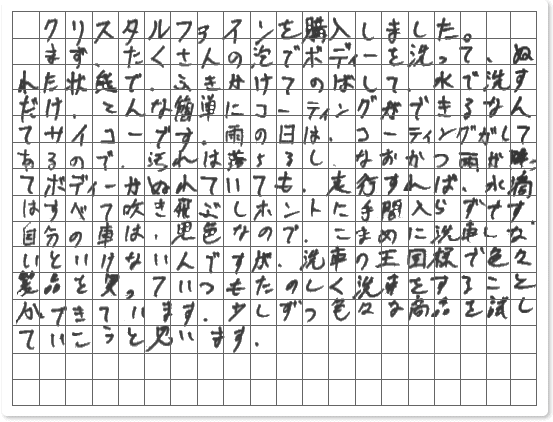 クリスタルファインを購入しました。
まず、たくさんの泡でボディーを洗って、ぬ
れた状態で、ふきかけてのばして、水で流す
だけ。こんな簡単にコーティングができるなん
てサイコーです。雨の日は、コーティングがして
あるので、汚れは落ちるし、なおかつ雨が降っ
てボディーがぬれていても、走行すれば、水滴
はすべて吹き飛ぶしホントに手間入らずです。
自分の車は、黒色なので、こまめに洗車しな
いといけないんですが、洗車の王国様で色々
製品を買っていつもたのしく洗車をすること
ができています。少しずつ色々な商品を試し
ていこうと思います。